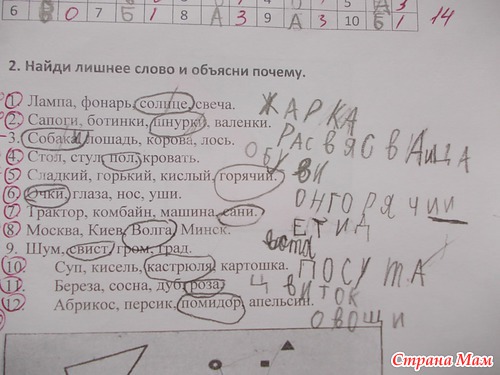 6 В 0 7 Б 1 8 А 3 9 А 3 10 Б 1 14
2. Найди лишнее слово и объясни почему.
1. Лампа, фонарь, солнце, свеча. ЖАРКА
2. Сапоги, ботинки, шнурки, валенки. РАСВЯСВАИЦА
3. Собака, лошадь, корова, лось.
4. Стол, стул, пол, кровать. ОБУВИ
5. Сладкий, горький, кислый, горячий.
6. Очки, глаза, нос, уши. ОНГОРЯЧИИ
7. Трактор, комбайн, машина, сани. ЕТИД
8. Москва, Киев, Волга, Минск.
9. Шум, свист, гром, град.
10. Суп, кисель, кастрюля, картошка. ПОСУТА
11. Береза, сосна, дуб, роза. ЦВИТОК
12. Абрикос, персик, помидор, апельсин. ОВОЩИ
Страна Мам